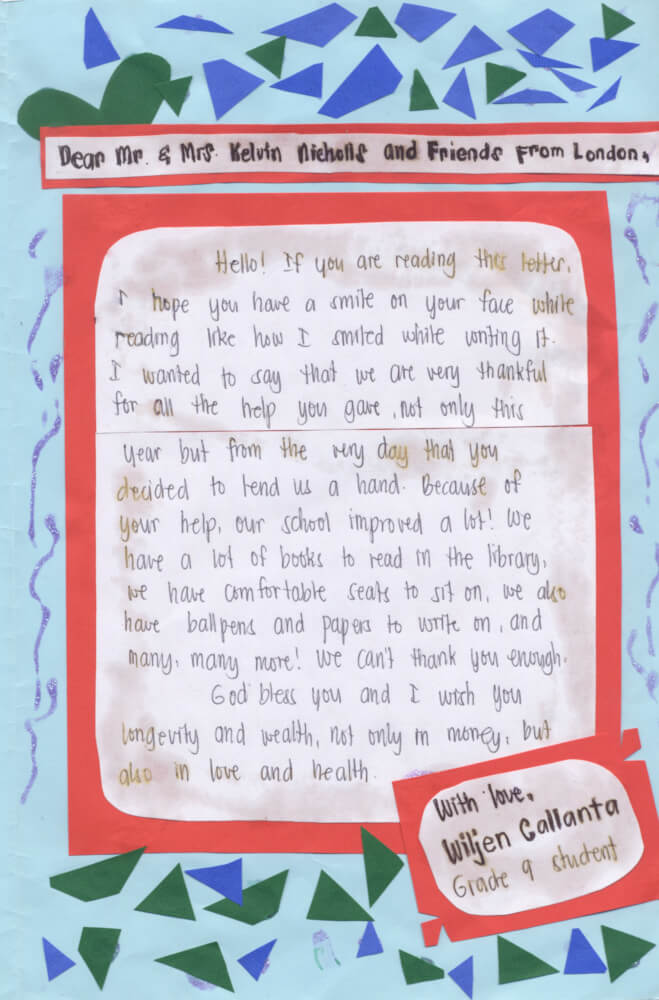 Dear Mr. & Mrs. Kelvin Nicholls and Friends From London,
Hello! If you are reading this letter,
I hope you have a smile on your face while
reading like how I smiled while writing it.
I wanted to say that we are very thankful
for all the help you gave, not only this
year but from the very day that you
decided to lend us a hand. Because of
your help, our school improved a lot! We
have a lot of books to read in the library,
we have comfortable seats to sit on, we also
have ballpens and papers to write on, and
many, many more! We can't thank you enough.
God bless you and I wish you
longevity and wealth, not only in money, but
also in love and health.
With love,
Wiljen Callanta
Grade 9 student